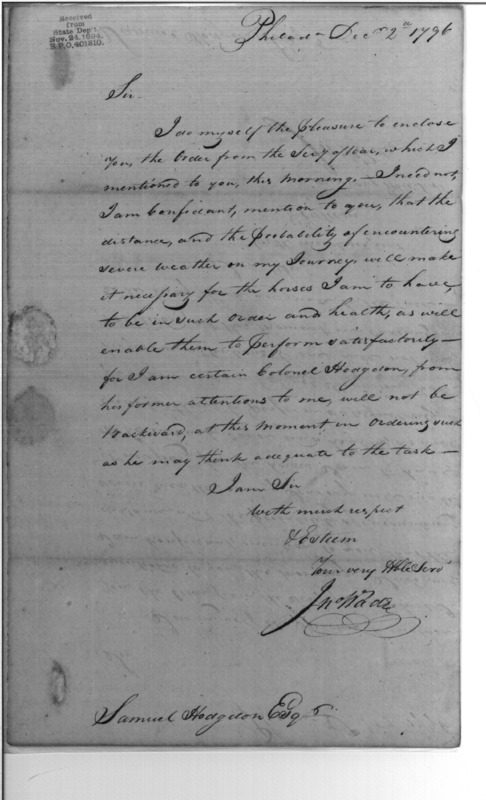 Received
from
State Dep't.
Nov. 24, 1894.
S.P.O. 401810.
Philad- Decr 2d 1796
Sir-
I do myself the pleasure to enclose
You, the Order from the Secy of War, which I
mentioned to you, this Morning. – I need not,
I am Confident, mention to you, that the
distance, and the Probability of encountering
severe weather on my Journey will make
it necessary for the horses I am to have,
to be in such Order and health, as will
enable them to Perform satisfactorily –
for I am certain Colonel Hodgdon, from
his former attentions to me, will not be
backward, at this Moment in Ordering such
as he may think adequate to the task –
I am Sir
With much respect
& Esteem
Your very Hble Servt
Jno Wade
Samuel Hodgdon Esqr